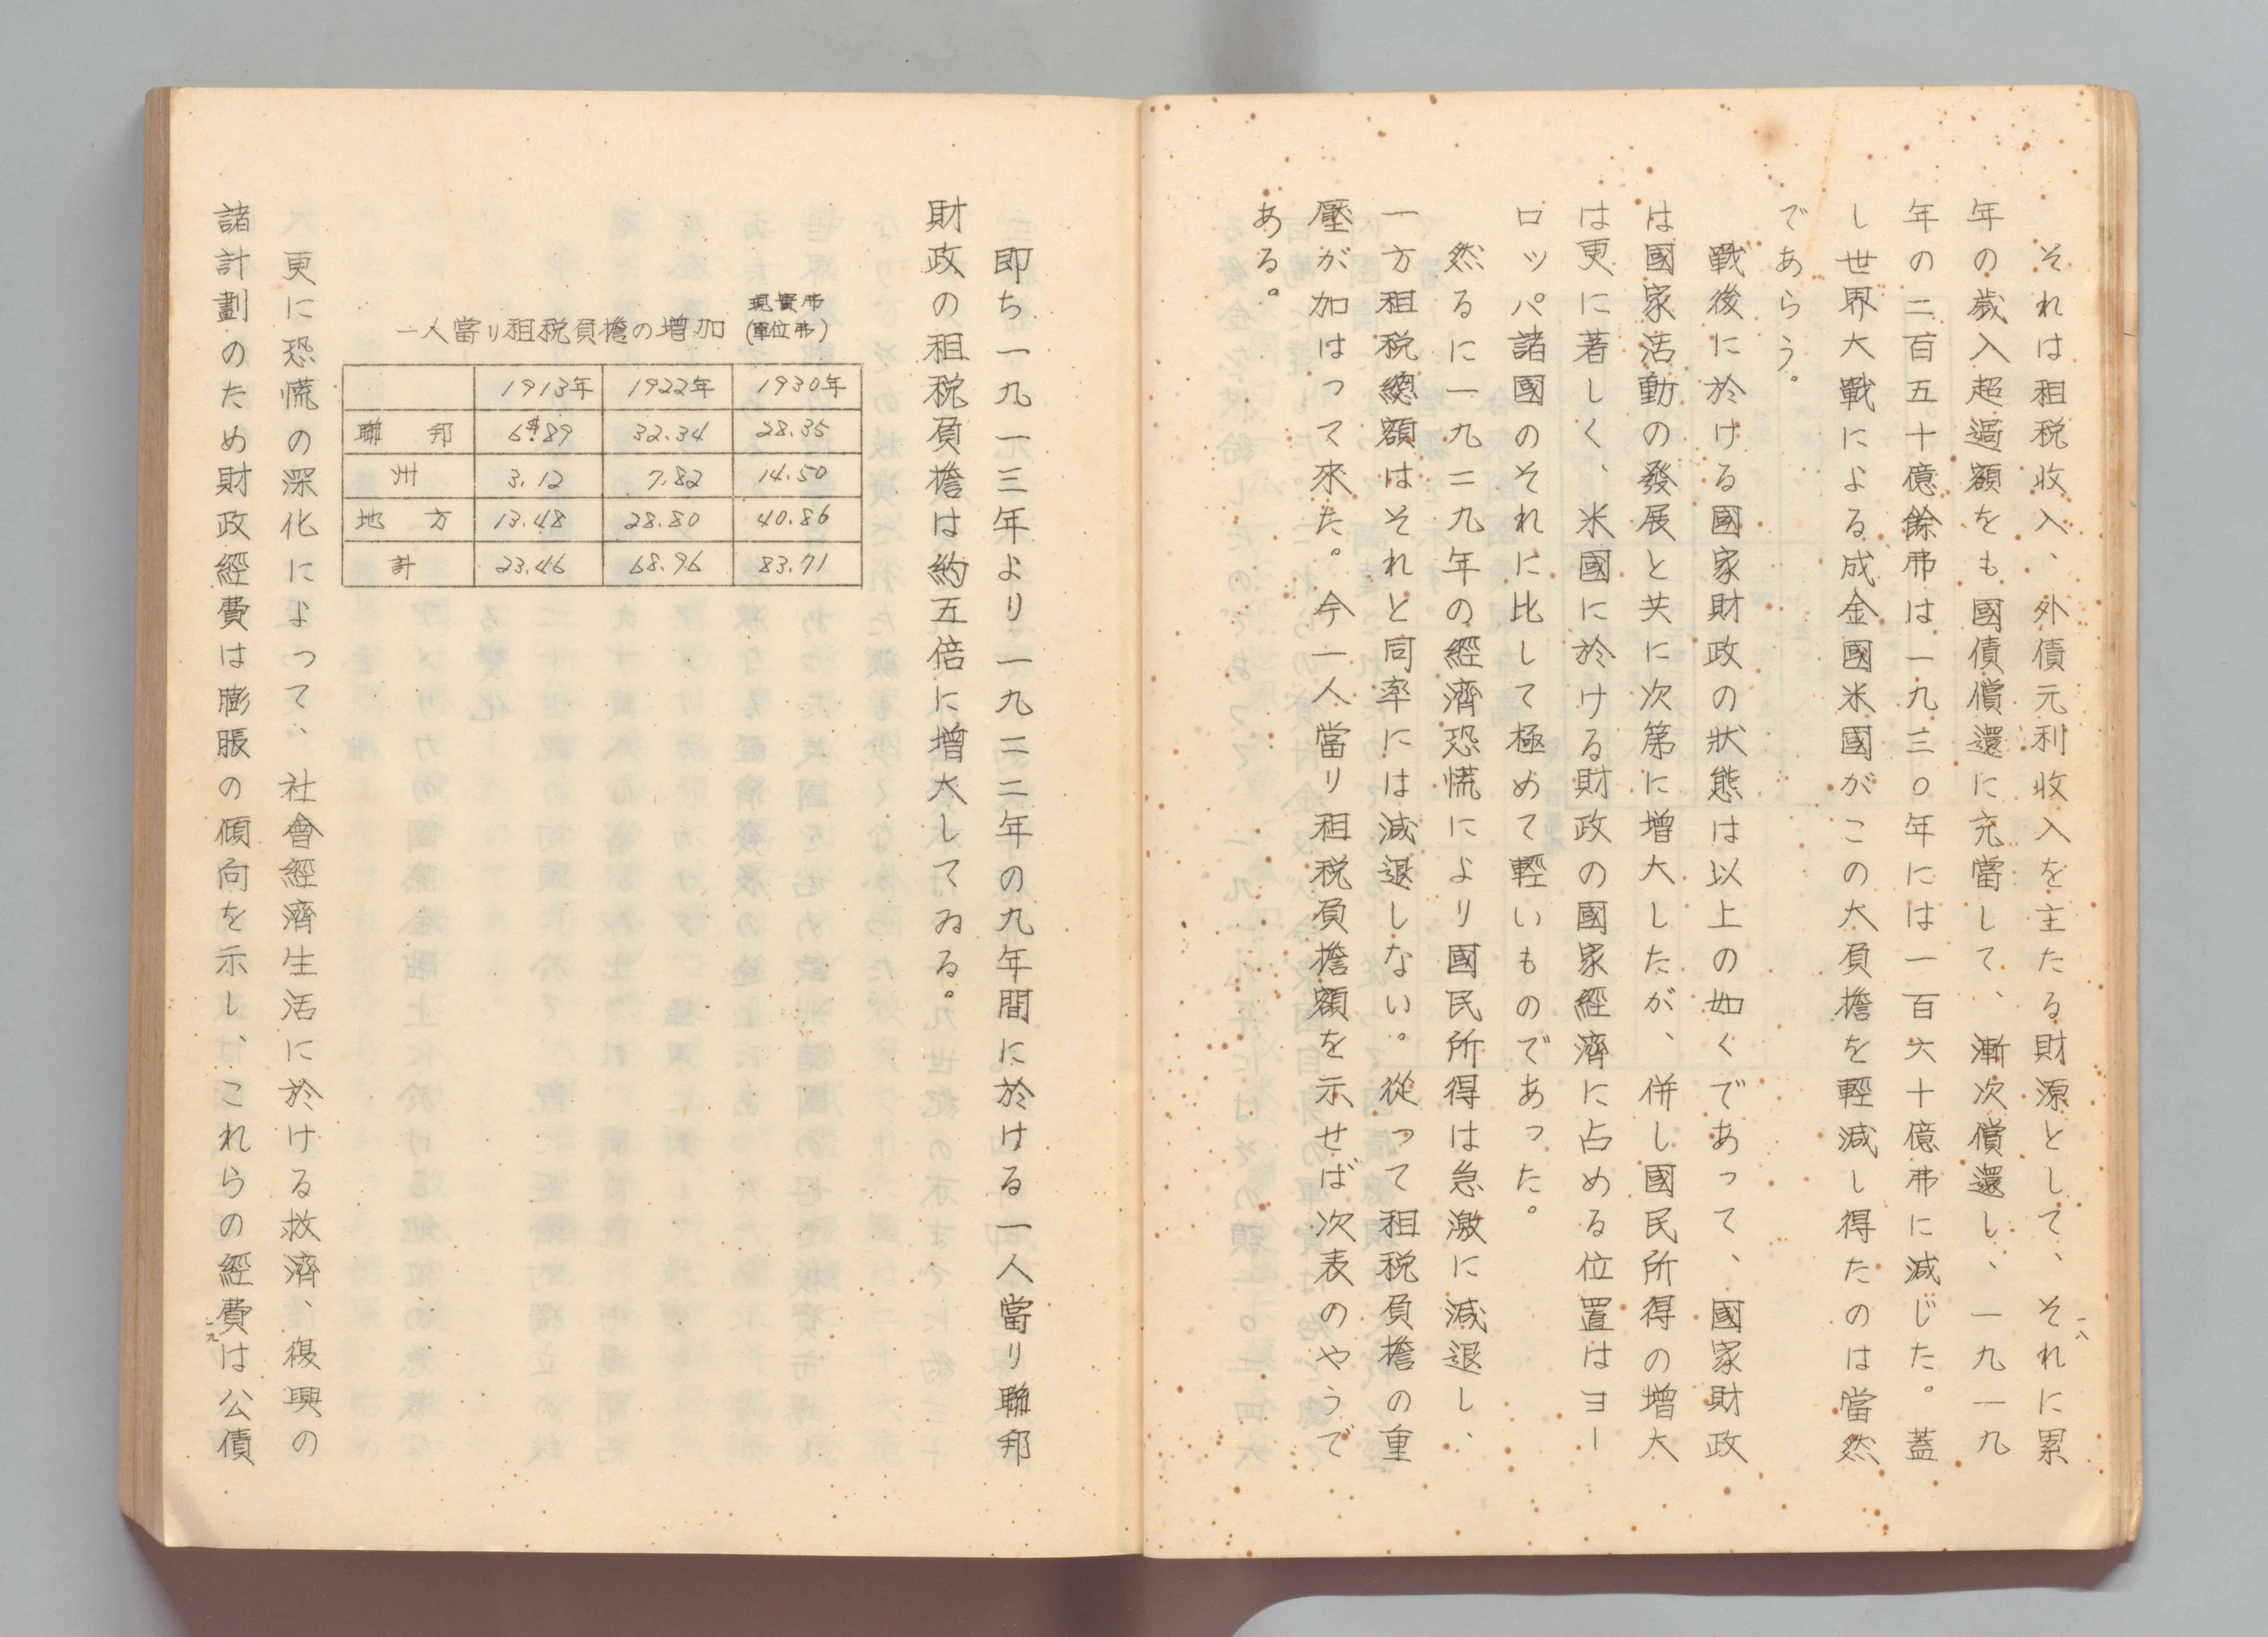 それは租税收入、外債元利收入を主たる財源として、それに累
年の歳入超過額をも國債償還に充當して、漸次償還し、一九一九
年の二百五十億餘弗は一九三〇年には一百六十億弗に減じた。蓋
し世界大戰による成金國米國がこの大負擔を輕減し得たのは當然
であらう。
戰後に於ける國家財政の狀態は以上の如くであって、國家財政
は國家活動の發展と共に次第に增大したが、併し國民所得の增大
は更に著しく、米國に於ける財政の國家經濟に占める位置はヨー
ロッパ諸國のそれに比して極めて輕いものであった。
然るに一九二九年の經濟恐慌により國民所得は急激に減退し、
一方租税總額はそれと同率には減退しない。從って租税負擔の重
壓が加はって來た。今一人當り租税負擔額を示せば次表のやうで
ある。
一八
即ち一九一三年より一九二二年の九年間に於ける一人當り聯邦
財政の租税負擔は約五倍に增大してゐる。
一人當り租税負擔の增加 現實弗 (單位弗)
1913年 1922年 1930年
聯邦 6$.89 32.34 28.35
州 3.12 7.82 14.50
地方 13.48 28.80 40.86
計 23.46 68.96 83.71
更に恐慌の深化によって、社會經濟生活に於ける救濟、復興の
諸計劃のため財政經費は膨脹の傾向を示し、これらの經費は公債
一九